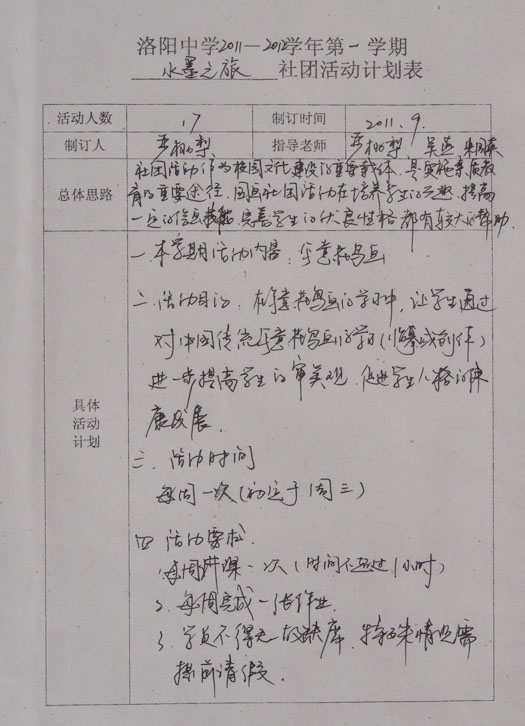 洛阳中学2011—2012学年第一学期
水墨之旅 社团活动计划表
活动人数 17 制订时间 2011.9.
制订人 柳梨 指导老师 柳梨 吴
社团活动作为校园文化建设的重要载体,是实施素质教
总体思路
育的重要途径,国画社团活动在培养学生的兴趣,提高
一定的信息技能,完善学生的优良性格都有较大的帮助
一、本学期活动内容:写意花鸟画
二、活动目的:在写意花鸟画的学习中,让学生通过
对中国传统写意花鸟画的学习(临摹或创作)
进一步提高学生的审美观,促进学生人格的健
康发展.
具体
活动
计划
三、活动时间
每周一次(初定于周三)
四 活动要求.
1.每周讲课一次(时间不超过1小时)
2.每周完成一张作业.
3.学员不得无故缺席,特殊情况需
提前请假.